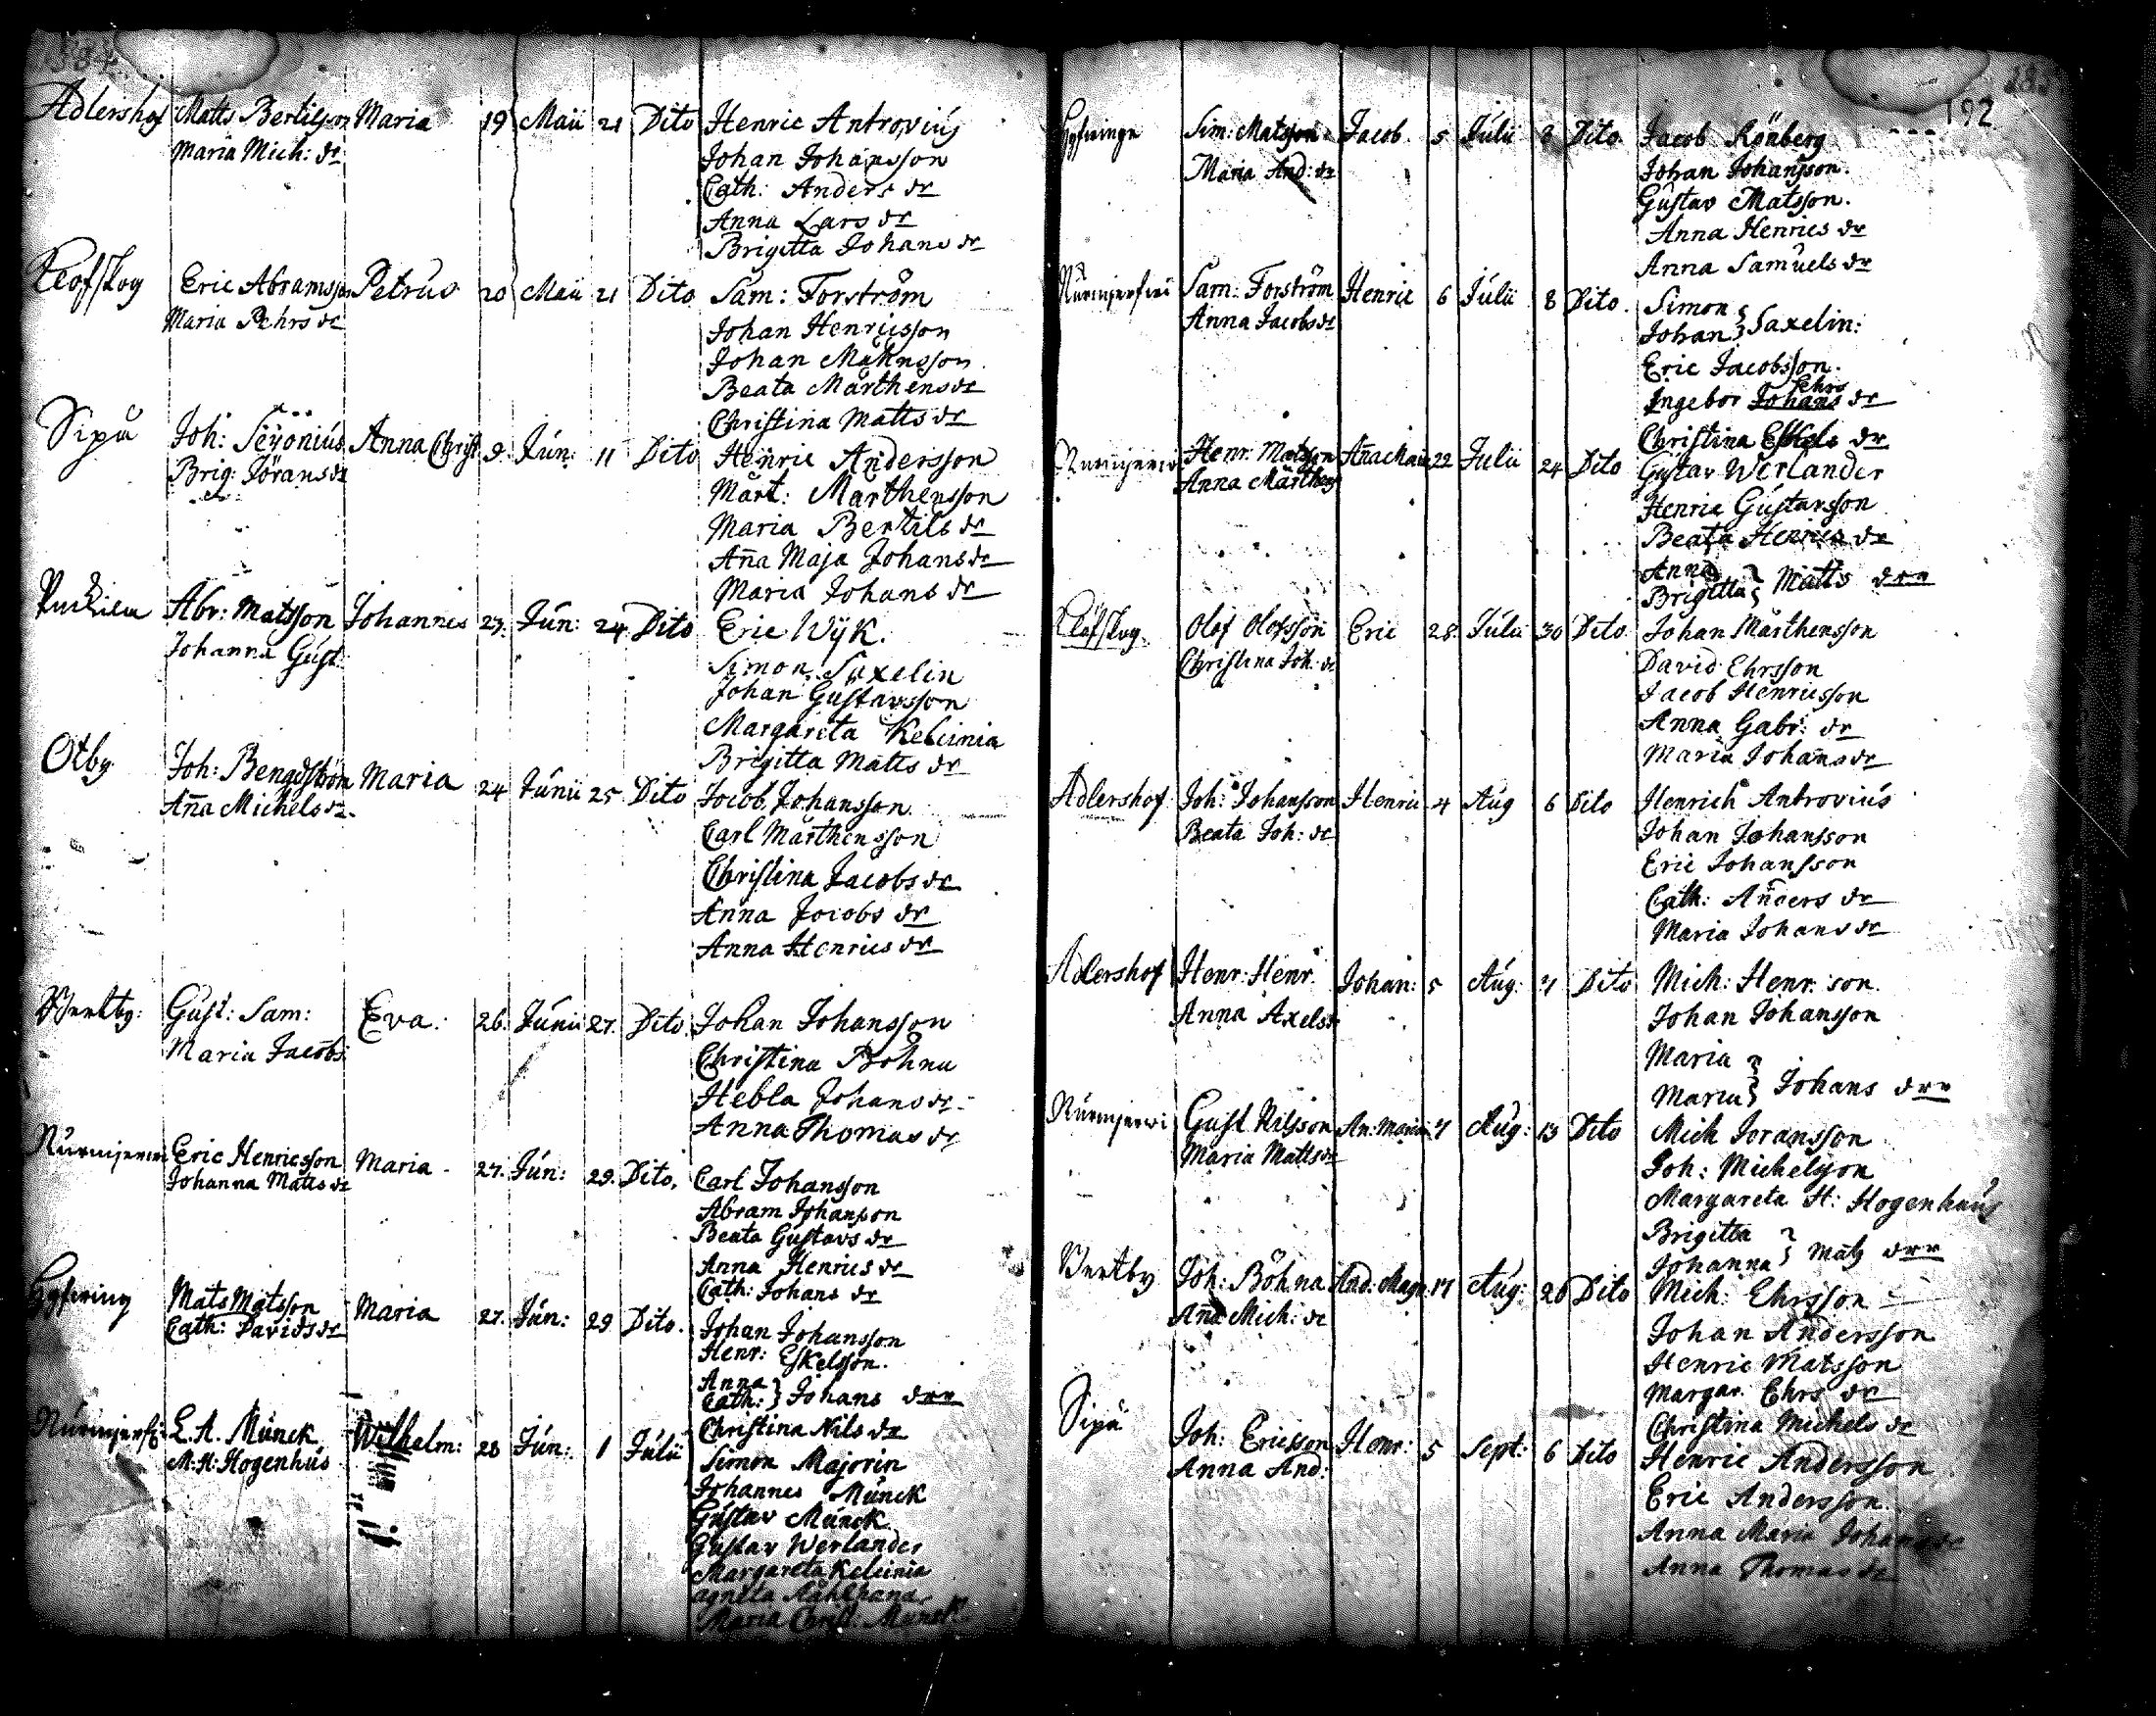 Adlershof Matts Bertilsson Maria 19 Maii 21 Dito Henric Antrovius
Maria Mich: dr Johan Johansson
Cath: Anders dr
Anna Lars dr
Brigitta Johans dr
Löfskog Eric Abramsson Petrus 20 Maii 21 Dito Sam: Forström
Maria Pehrs dr Johan Henricsson
Johan
Beata Mårthens dr
Christina Matts dr
Sipu Joh: Anna Christ 9 Jún: 11 Dito Henric Andersson
Brig: Jörans dr Mårt: Marthensson
Maria Bertils dr
Aña Maja Johans dr
Maria Johans dr
Abr: Matsson Johannes 23. Jún: 24 Dito Eric Wÿk.
Johanna Gust: Simon Saxelin
Johan Gustavsson
Margareta Kelcinia
Brigitta Matts dr
Otby Joh: Bengdström Maria 24 Júnii 25 Dito Jacob Johansson
Aña Michels dr Carl Mårthensson
Christina Jacobs dr
Anna Jacobs dr
Anna Henrics dr
Wertby: Gust: Sam: Eva. 26. Júnii 27. Dito Johan Johansson
Maria Jacobs Christina Böhna
Hebla Johans dr
Anna Thomas dr
Nurmijerwi Eric Henricsson Maria 27. Jún: 29. Dito. Carl Johansson
Johanna Matts dr Abram Johansson
Beata Gustavs dr
Anna Henrics dr
Cath: Johans dr
Mats Matsson Maria 27. Jún: 29 Dito. Johan Johansson
Cath: Davids dr Henr: Eskelsson.
Anna
Cath: } Johans drr
Christina Nils dr
Nurmijerfwi E. A. Múnck Wilhelm: 28 Jún: 1 Júlii Simon Majorin
M: H: Hogenhús Johannes Múnck
Gústav Múnck
Gustav Werlander
Margareta Kelcinia
Agneta
Maria Christ: Munck
192
Sim: Matsson Jacob. 5 Júlii 8 Dito Jacob Rönberg
Maria And: dr Johan Johansson.
Gústav Matsson.
Anna Henrics dr
Anna Samuels dr
Nurmijerfwi Sam: Forström Henric 6 Júlii 8 Dito. Simon
Anna Jacobs dr Johan } Saxelin:
Eric Jacobsson.
Pehrs
Ingebor Johans dr
Christina Eskels dr
Nurmijerwi Henr: Matsson Aña Maria 22 Julii 24 Dito Gústav Werlander
Anna Mårthens Henric Gústavsson
Beata Henrics dr
Anna
Brigitta } Matts drr
Löfskog. Olof Olofsson Eric 28 Júlii 30 Dito. Johan Mårthensson
Christina Joh: dr David Ehrsson
Jacob Henricsson
Anna Gabr: dr
Maria Johans dr
Adlershof Joh: Johansson Henric 4 Aúg 6 Dito Henrich Antrovius
Beata Joh: dr Johan Johansson
Eric Johansson
Cath: Anders dr
Maria Johans dr
Adlershof Henr: Henr. Johan: 5 Aúg: 7 Dito Mich: Henr: son.
Anna Axels dr Johan Johansson
Maria
Maria } Johans drr
Nurmjerwi Gust Nilsson An: Maria 7 Aúg: 13 Dito Mich Joransson
Maria Matts dr Joh: Michelsson
Margareta H: Hogenhaus
Brigitta
Johanna } Mats drr
Wertby Joh: Böhna And: Magn: 17 Aúg: 20 Dito Mich: Ehrsson
Aña Mich: dr Johan Andersson
Henric Matsson
Margar: Ehrs dr
Christina Michels dr
Sipu Joh: Ericsson Henr: 5 Sept: 6 Dito Henric Andersson
Anna And: Eric Andersson
Anna Maria Johans dr
Anna Thomas dr